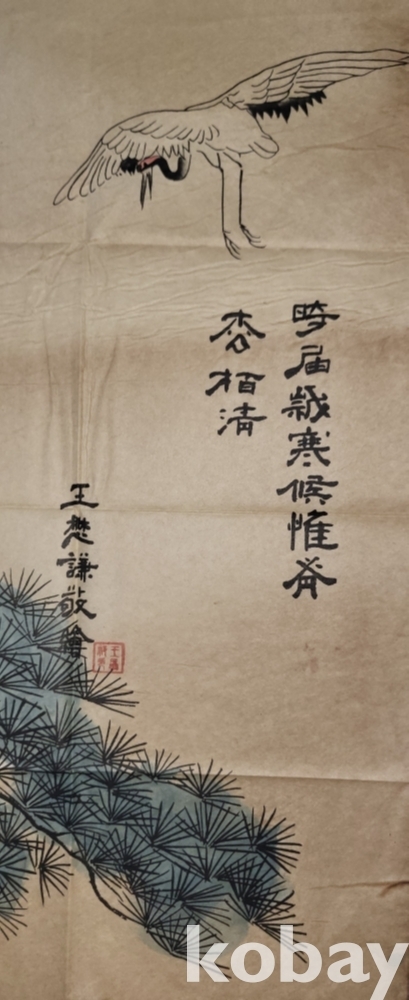 時屆歲寒候惟
枩栢清
王懋謙敬繪
kobay